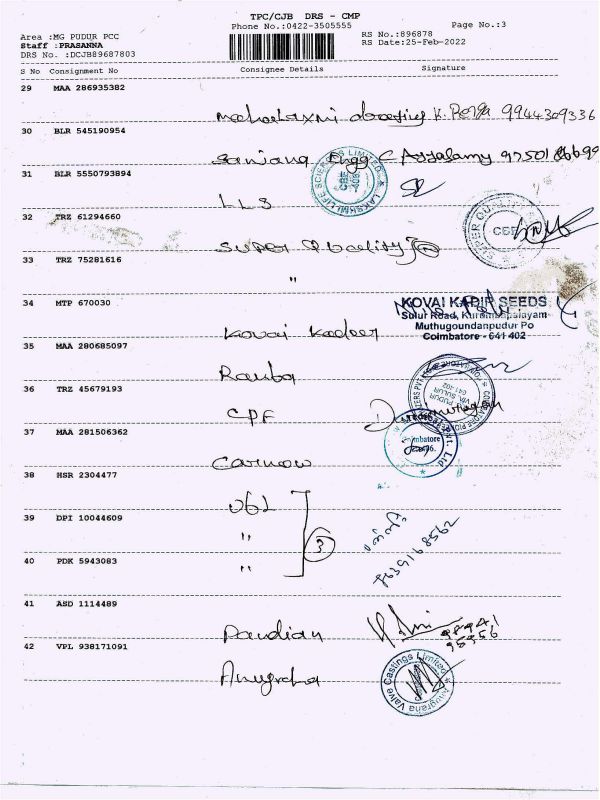 TPC/CJB DRS - CMP
Phone No.:0422-3505555
Page No.:3
Area :MG PUDUR PCC
Staff :PRASANNA
DRS No. :DCJB89687803
RS No.:896878
RS Date:25-Feb-2022
S No Consignment No Consignee Details Signature
29 MAA 286935382
9944309336
30 BLR 545190954
LAKSHMI LIFE SCIENCES LIMITED
CBE
31 BLR 5550793894
LLS
32 TRZ 61294660
Super Quality
SUPER
CBE
33 TRZ 75281616
"
34 MTP 670030
Kovai Kadeer
KOVAI KADIR SEEDS
Sulur Road, Kurumbapalayam
Muthugoundanpudur Po
Coimbatore - 641 402
35 MAA 280685097
Ramba
PUDUR
VIA. SULUR
641-402
36 TRZ 45679193
CPF
37 MAA 281506362
Coimbatore
Pvt. Ltd
38 HSR 2304477
UBL
39 DPI 10044609
"
3
40 PDK 5943083
"
41 ASD 1114489
Pandian
98941
95956
42 VPL 938171091
Anugraha
Anugraha Valve Castings Limited